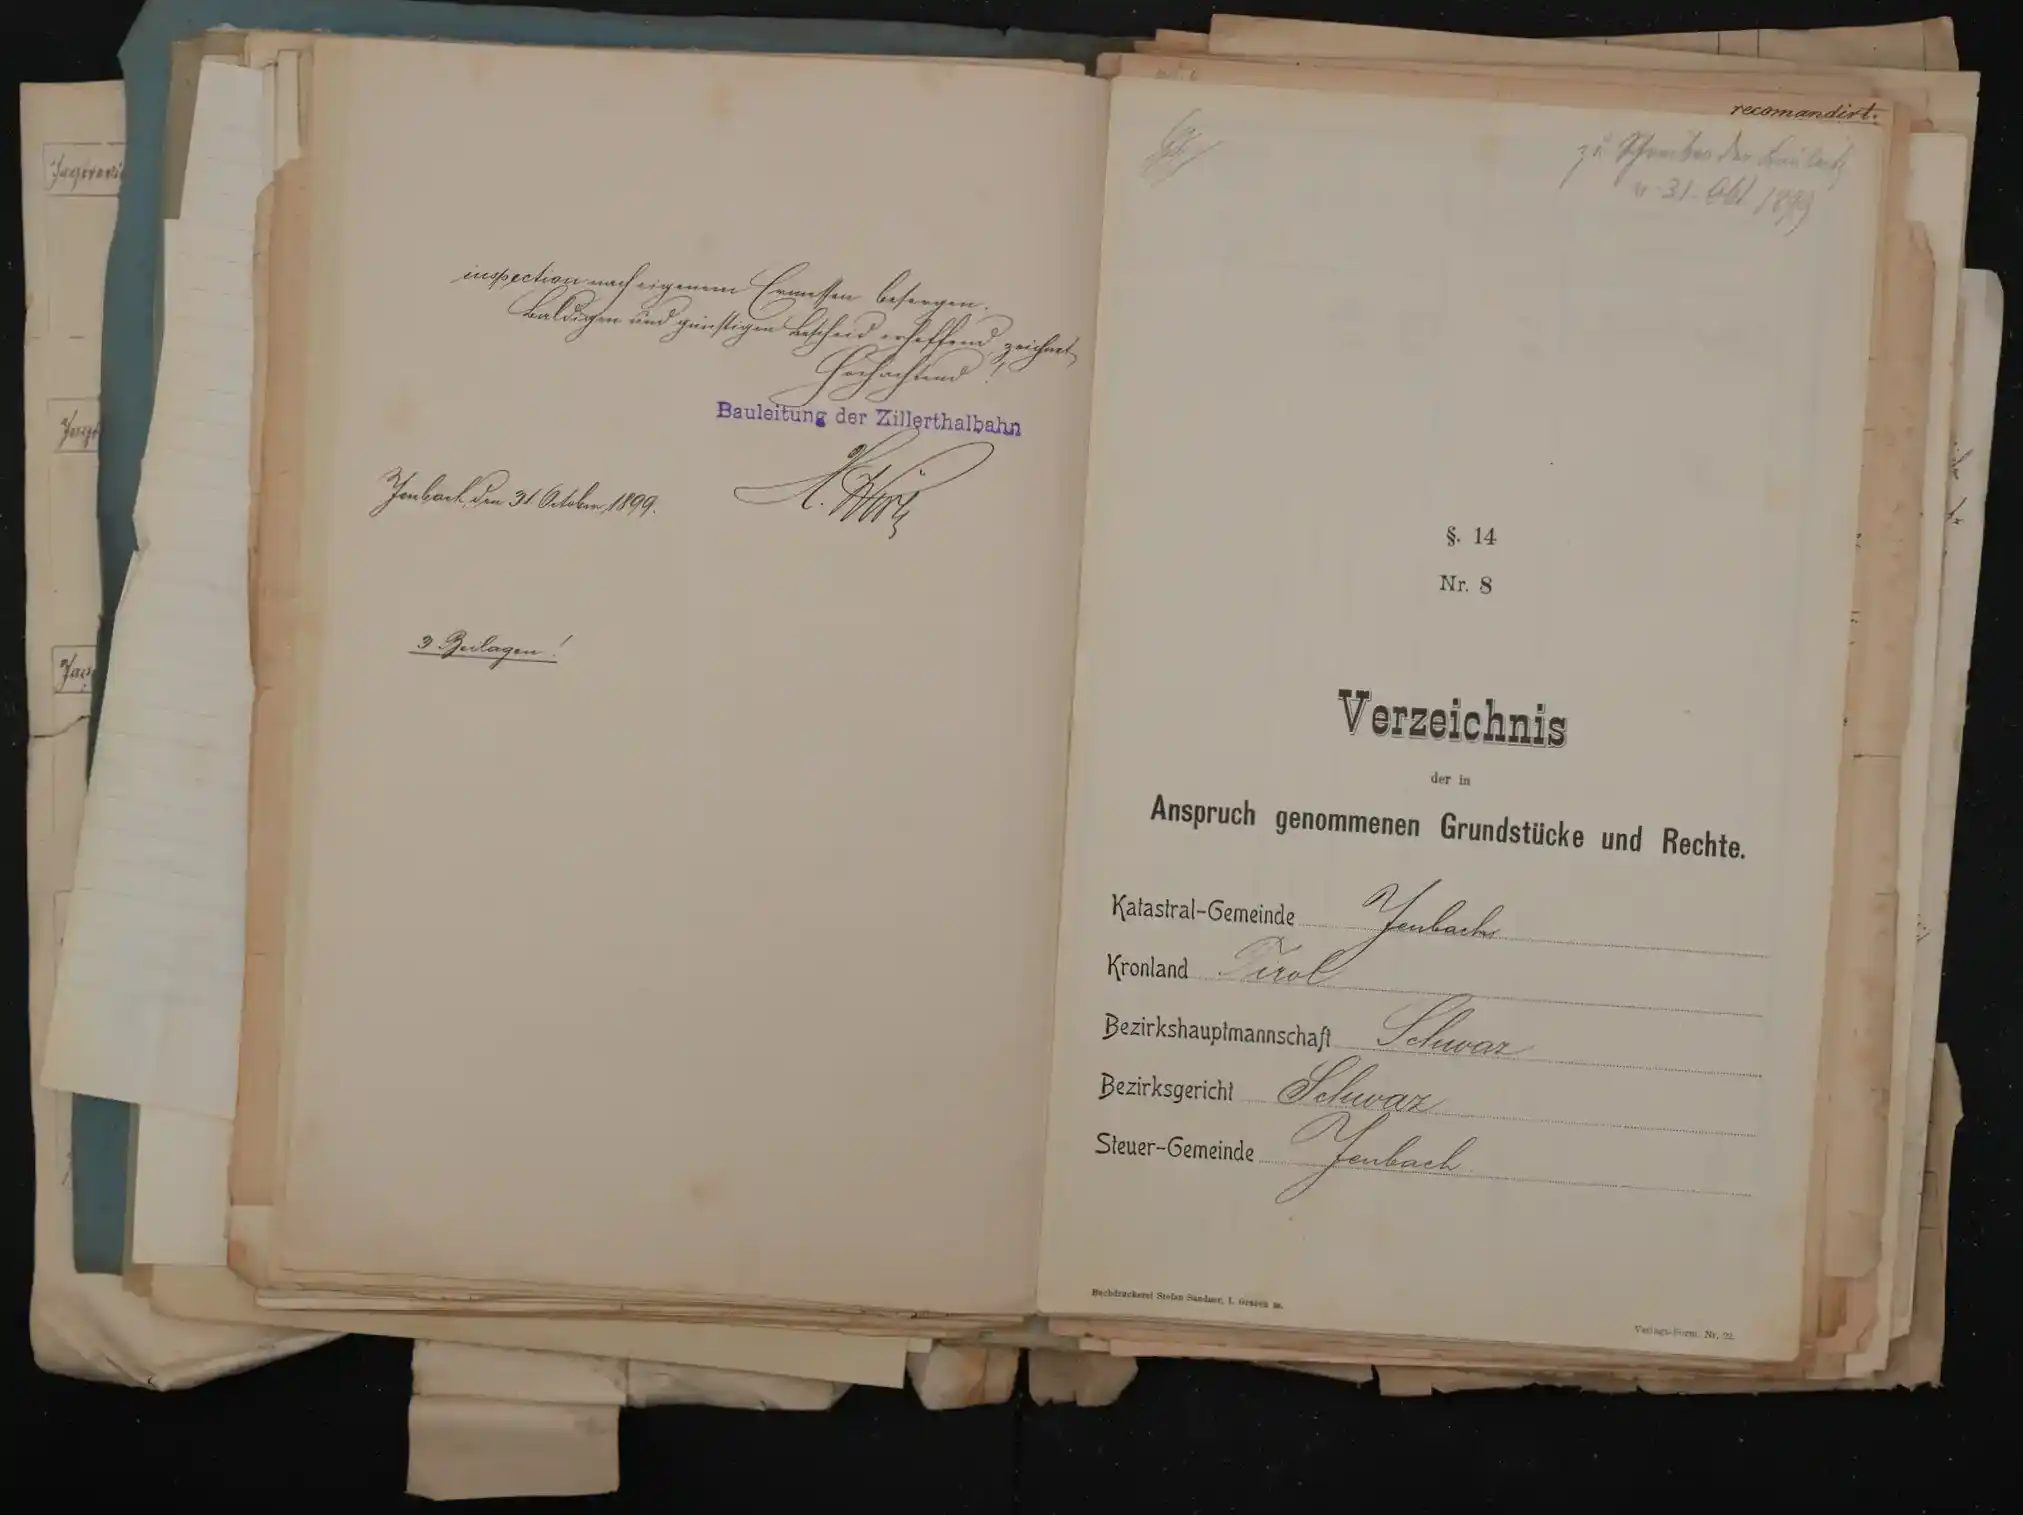 inspection nach eigenem Ermessen besorgen.
Baldigen und günstigen Bescheid erhoffend, zeichnet,
Hochachtend!
Bauleitung der Zillerthalbahn
Jenbach, den 31 October 1899.
3 Beilagen!
recomandirt.
zu Schreiben der Bauleitg
v. 31. Okt 1899
§. 14
Nr. 8
Verzeichnis
der in
Anspruch genommenen Grundstücke und Rechte.
Katastral-Gemeinde Jenbach
Kronland Tirol
Bezirkshauptmannschaft Schwaz
Bezirksgericht Schwaz
Steuer-Gemeinde Jenbach
Buchdruckerei Stefan Sandner, I. Graben
Verlags-Form. Nr. 22.